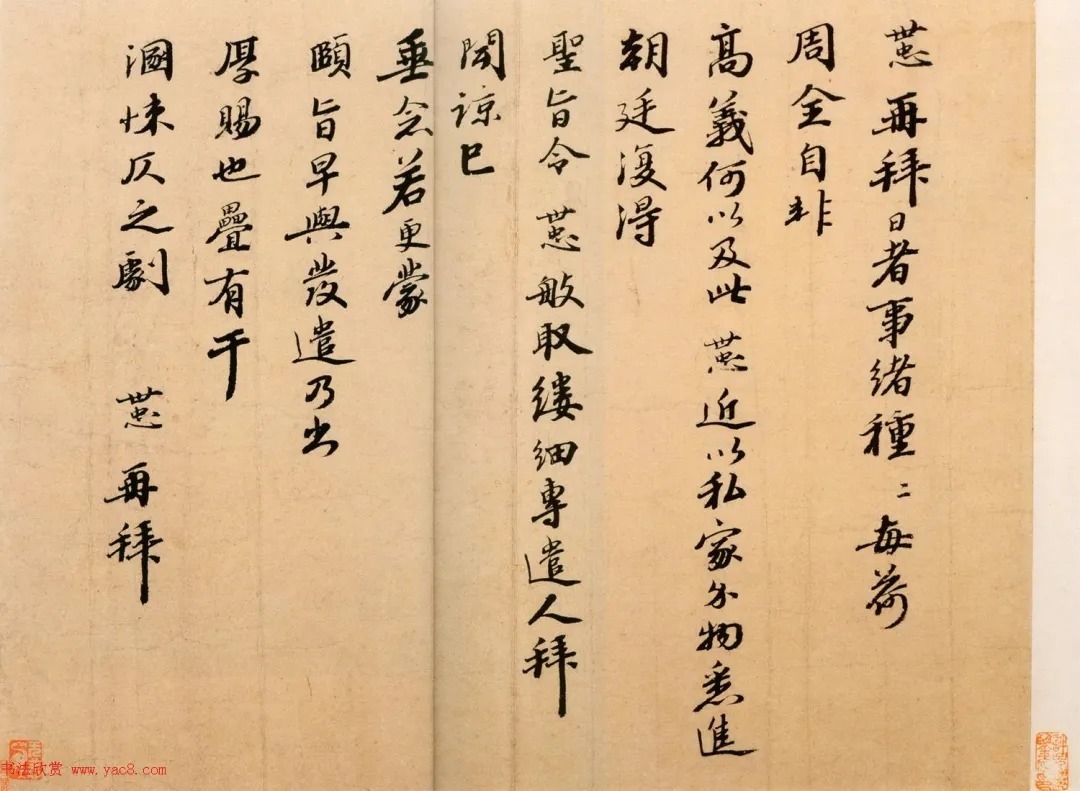 世忠再拜日者事緒種〻每荷
周全自非
高義何以及此世忠近以私家分物悉進
朝廷復得
聖旨令世忠敏取縷細專遣人拜
聞諒已
垂念若更蒙
頤旨早與發遣乃出
厚賜也疊有干
溷悚仄之劇世忠再拜
书法欣赏 www.yac8.com